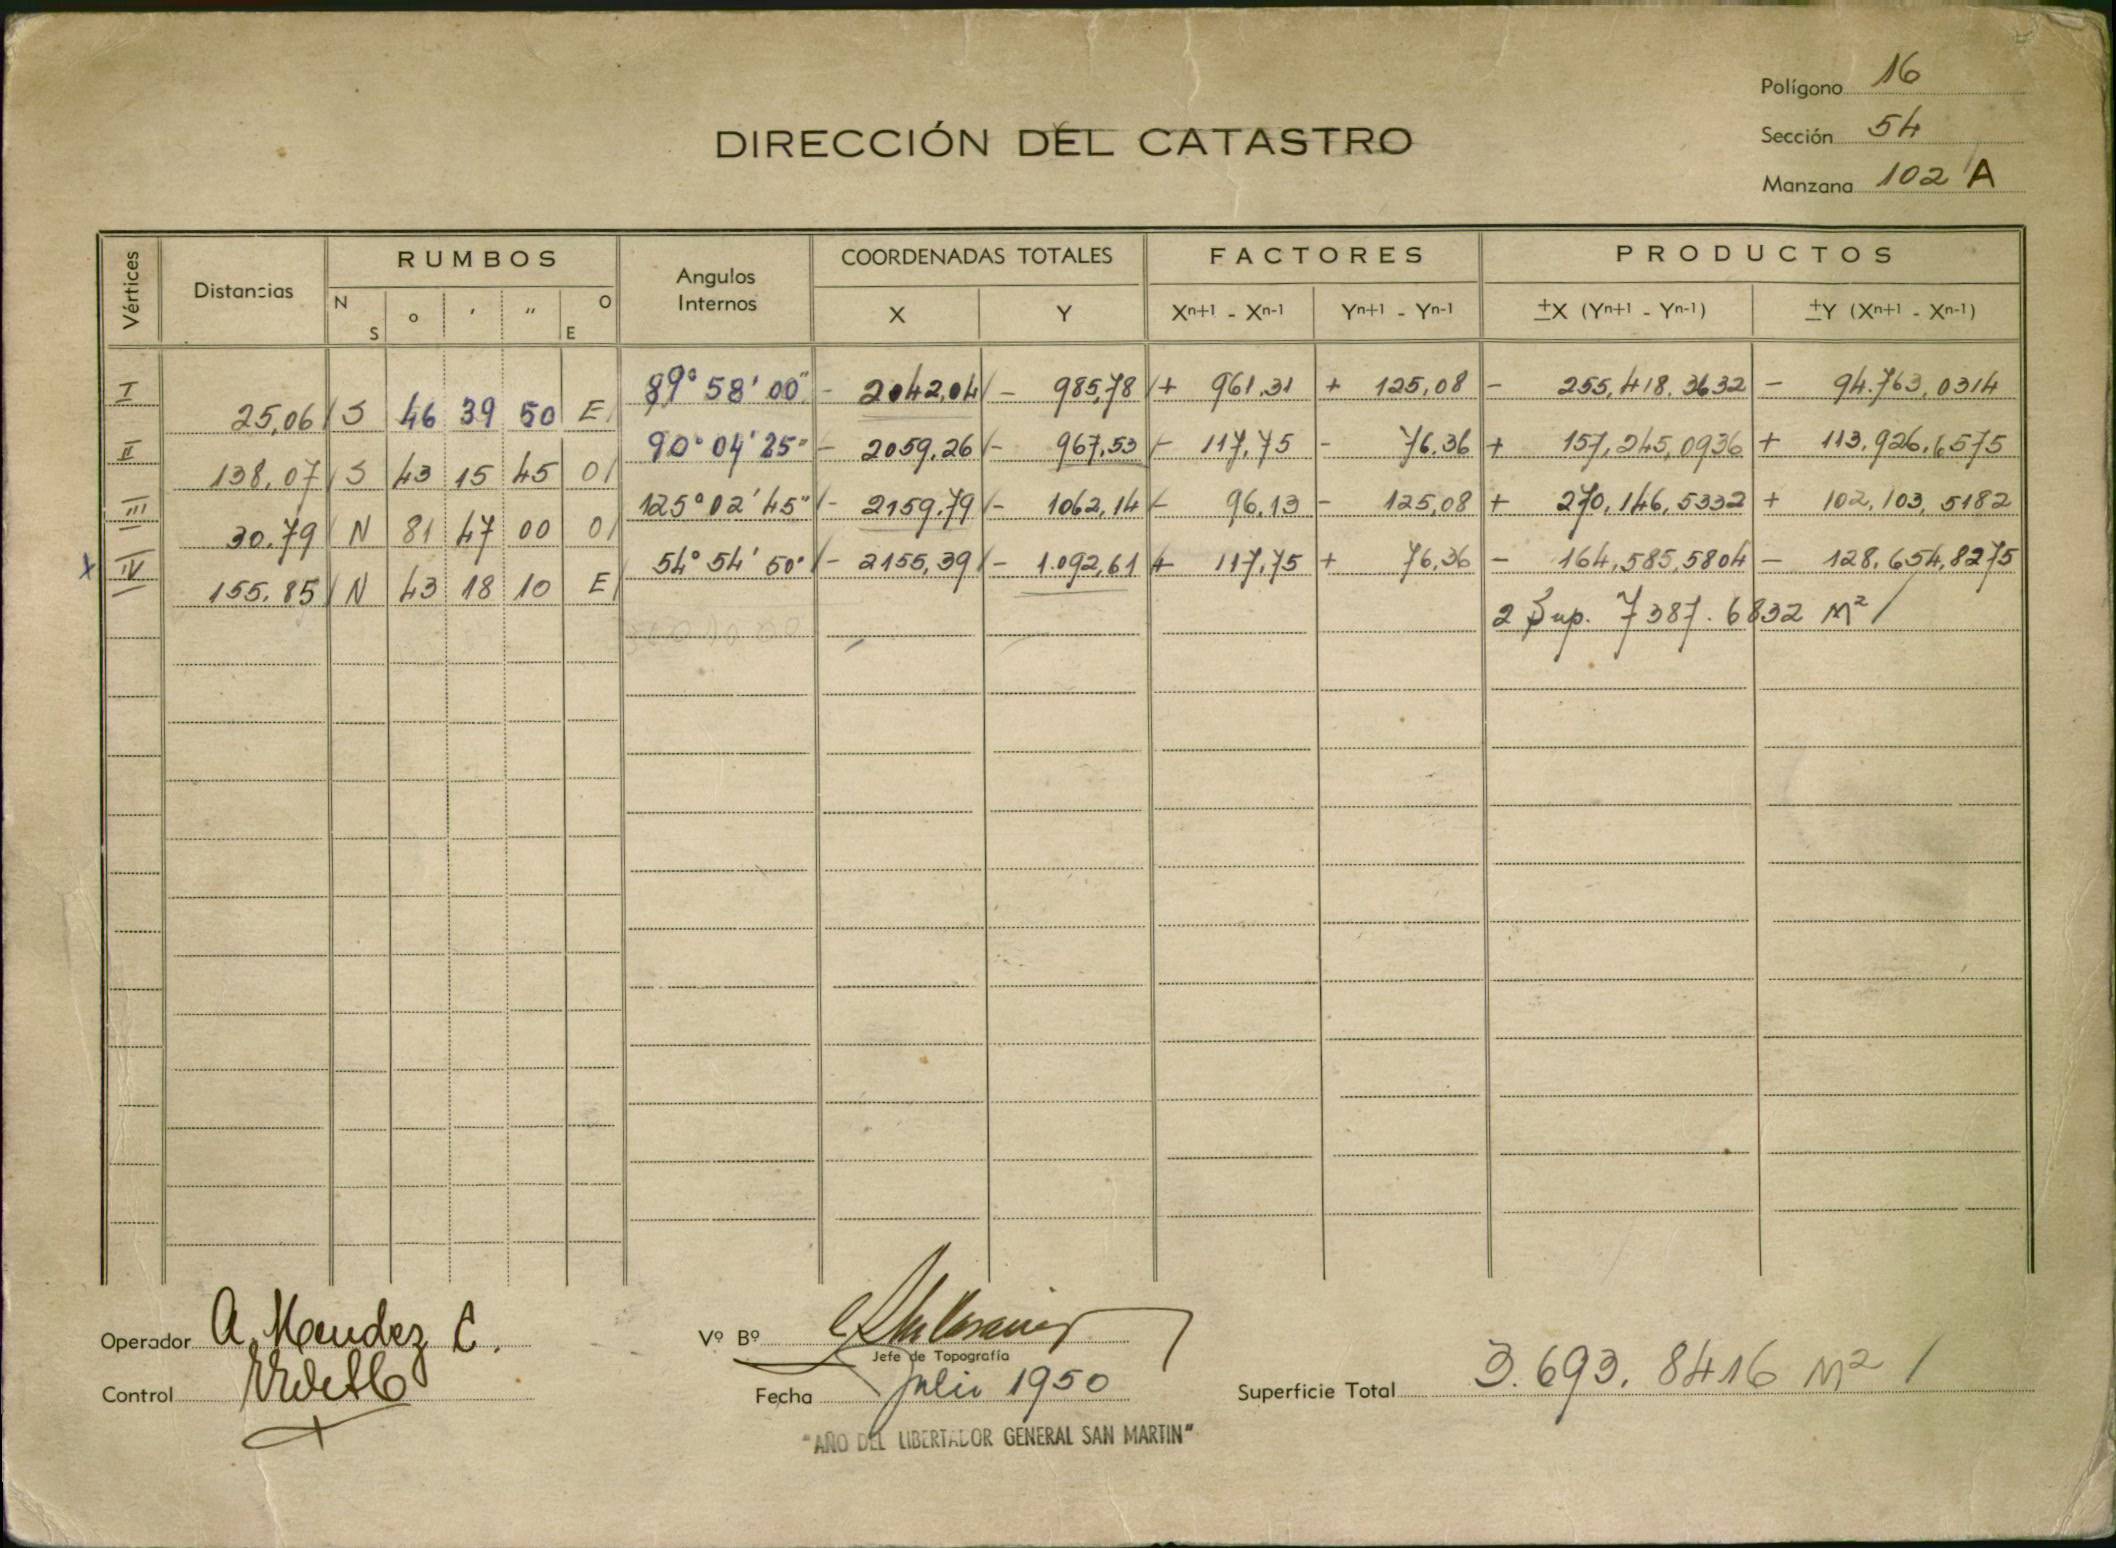 Polígono 16
Sección 54
Manzana 102 A
DIRECCIÓN DEL CATASTRO
Vértices Distancias RUMBOS Angulos Internos COORDENADAS TOTALES FACTORES PRODUCTOS
N S o ' " O E X Y Xn+1 - Xn-1 Yn+1 - Yn-1 ±X (Yn+1 - Yn-1) ±Y (Xn+1 - Xn-1)
I 89° 58' 00" - 2042,04 - 985,78 + 961,31 + 125,08 - 255,418.3632 - 94.763,0314
25,06 S 46 39 50 E
II 90° 04' 25" - 2059.26 - 967,53 - 117,75 - 76.36 + 157,245,0936 + 113,926,6575
138,07 S 43 15 45 O
III 125° 02' 45" - 2159.79 - 1062,14 - 96,13 - 125,08 + 270,146,5332 + 102,103,5182
30.79 N 81 47 00 O
X IV 54° 54' 50" - 2155,39 - 1.092,61 + 117,75 + 76,36 - 164,585,5804 - 128,654,8275
155.85 N 43 18 10 E
2 Sup. 7387.6832 M²
Operador A. Mendez C.
Control
Vº Bº
Jefe de Topografía
Fecha Julio 1950
Superficie Total 3.693.8416 M²
"AÑO DEL LIBERTADOR GENERAL SAN MARTIN"